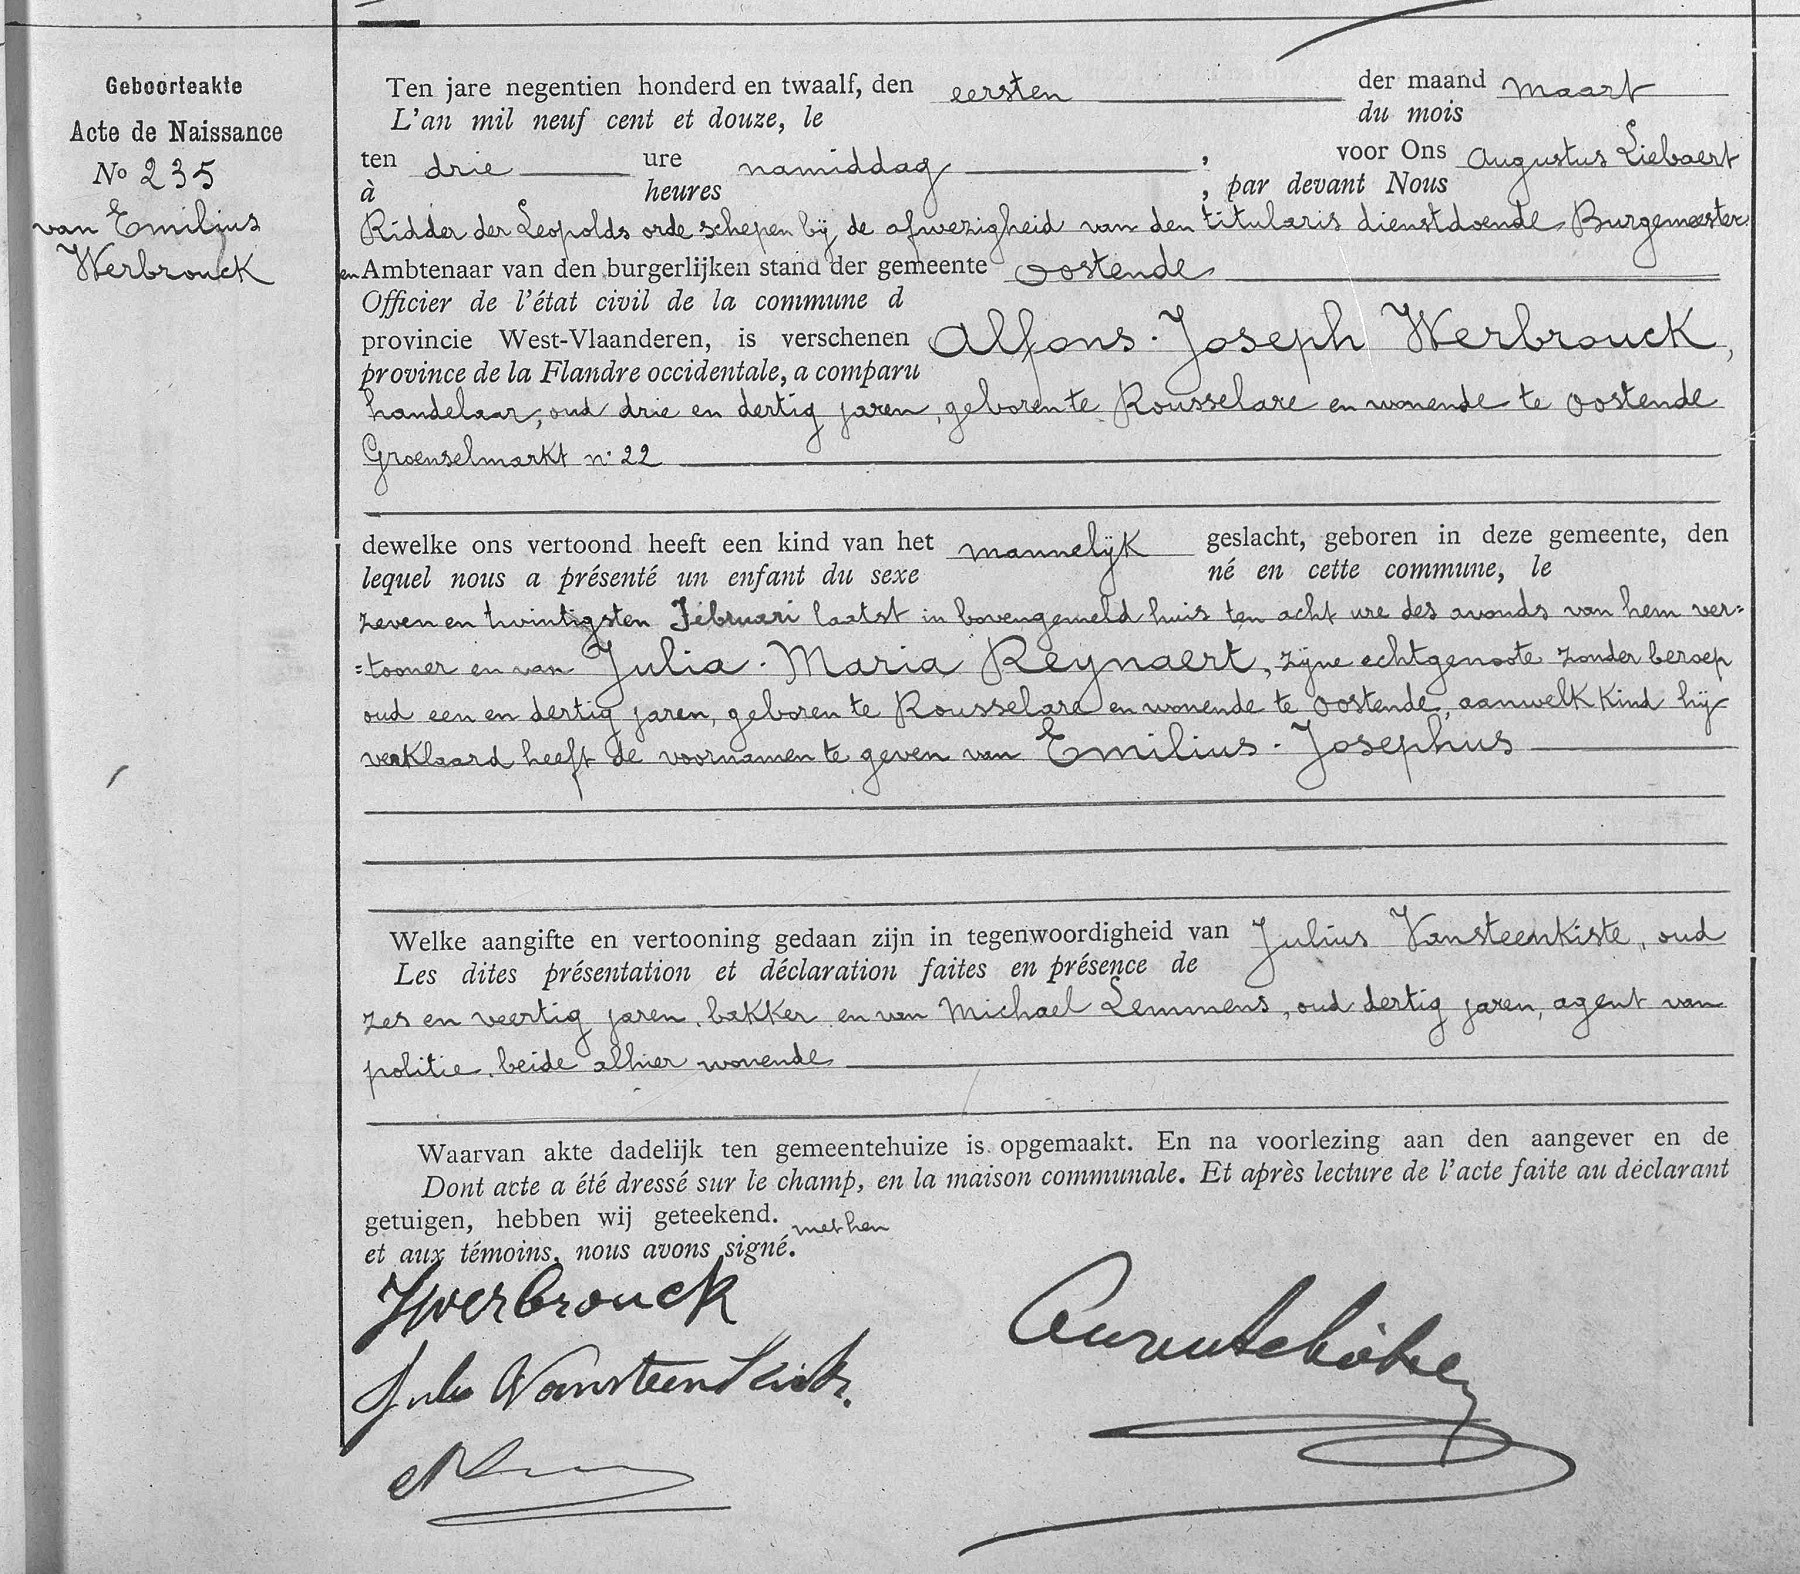 Geboorteakte
Acte de Naissance
No 235
van Emilius
Werbrouck
Ten jare negentien honderd en twaalf, den eersten der maand maart
L'an mil neuf cent et douze, le du mois
ten drie ure namiddag, voor Ons Augustus Liebaert
à heures , par devant Nous
Ridder der Leopolds orde schepen bij de afwezigheid van den titularis dienstdoende Burgemeester
en Ambtenaar van den burgerlijken stand der gemeente Oostende
Officier de l'état civil de la commune d
provincie West-Vlaanderen, is verschenen Alfons-Joseph Werbrouck,
province de la Flandre occidentale, a comparu
handelaar, oud drie en dertig jaren, geboren te Rousselare en wonende te Oostende
Groenselmarkt n° 22
dewelke ons vertoond heeft een kind van het mannelijk geslacht, geboren in deze gemeente, den
lequel nous a présenté un enfant du sexe né en cette commune, le
zeven en twintigsten Februari laatst in bovengemeld huis ten acht ure des avonds van hem ver=
=tooner en van Julia-Maria Reynaert, zijne echtgenoote zonder beroep
oud een en dertig jaren, geboren te Rousselare en wonende te Oostende, aan welk kind hij
verklaard heeft de voornamen te geven van Emilius-Josephus
Welke aangifte en vertooning gedaan zijn in tegenwoordigheid van Julius Vansteenkiste, oud
Les dites présentation et déclaration faites en présence de
zes en veertig jaren, bakker en van Michael Lemmens, oud dertig jaren, agent van
politie, beide alhier wonende
Waarvan akte dadelijk ten gemeentehuize is opgemaakt. En na voorlezing aan den aangever en de
Dont acte a été dressé sur le champ, en la maison communale. Et après lecture de l'acte faite au déclarant
getuigen, hebben wij geteekend. met hen
et aux témoins, nous avons signé.
Werbrouck
Jules Vansteenkiste